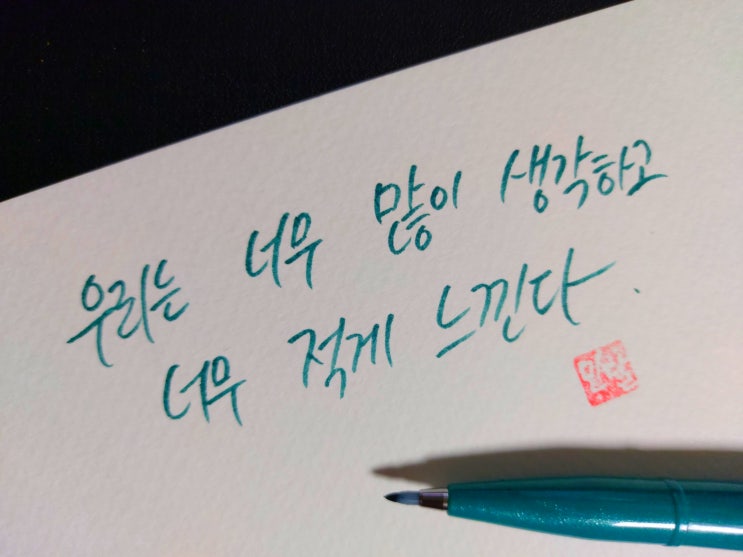 우리는 너무 많이 생각하고
너무 적게 느낀다.